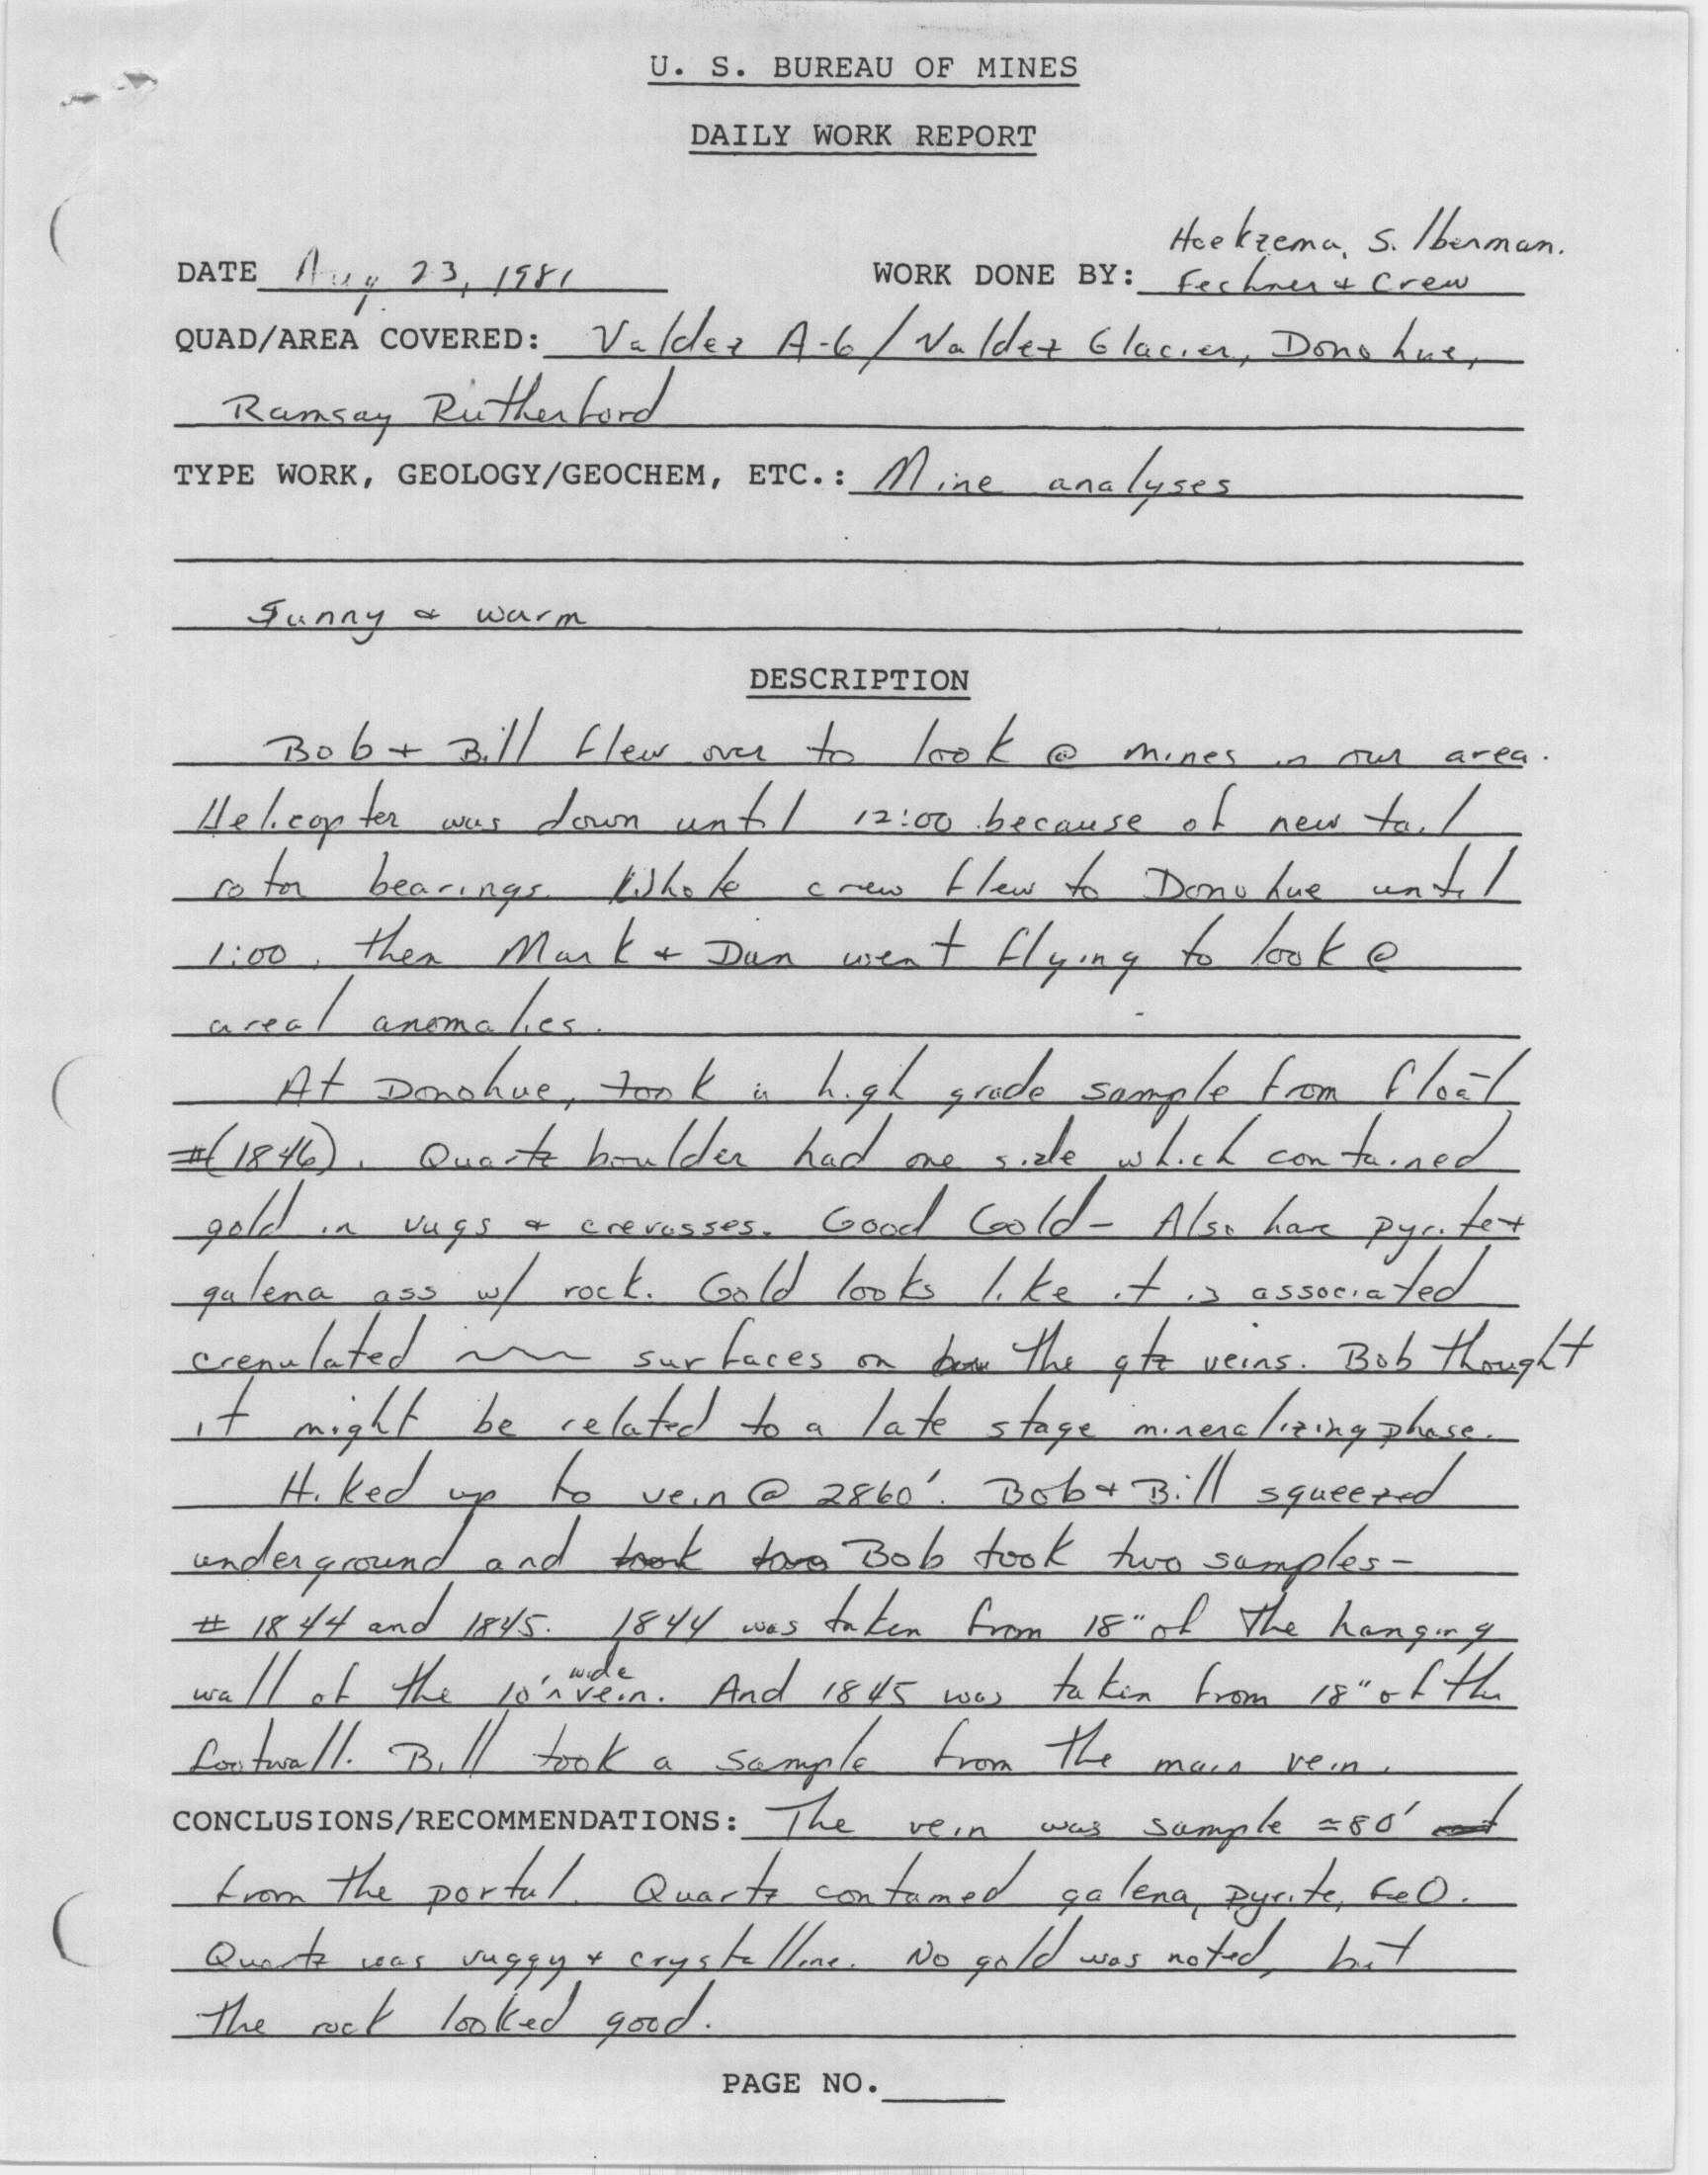 U. S. BUREAU OF MINES
DAILY WORK REPORT
Hoekzema, Silberman.
DATE Aug 23, 1981 WORK DONE BY: Fechner & Crew
QUAD/AREA COVERED: Valdez A-6/Valdez Glacier, Donohue,
Ramsay Rutherford
TYPE WORK, GEOLOGY/GEOCHEM, ETC.: Mine analyses
Sunny & warm
DESCRIPTION
Bob + Bill flew over to look @ mines in our area.
Helicopter was down until 12:00 because of new tail
rotor bearings. Whole crew flew to Donohue until
1:00, then Mark + Dan went flying to look @
areal anomalies.
At Donohue, took a high grade sample from float
#(1846). Quartz boulder had one side which contained
gold in vugs & crevasses. Good Gold - Also have pyrite +
galena ass w/ rock. Gold looks like it is associated
crenulated surfaces on the qtz veins. Bob thought
it might be related to a late stage mineralizing phase.
Hiked up to vein @ 2860'. Bob + Bill squeezed
underground and took two Bob took two samples-
# 1844 and 1845. 1844 was taken from 18" of the hanging
wall of the 10' wide vein. And 1845 was taken from 18" of the
footwall. Bill took a sample from the main vein.
CONCLUSIONS/RECOMMENDATIONS: The vein was sample ≈80'
from the portal. Quartz contained galena, pyrite, FeO.
Quartz was vuggy + crystalline. No gold was noted, but
the rock looked good.
PAGE NO.